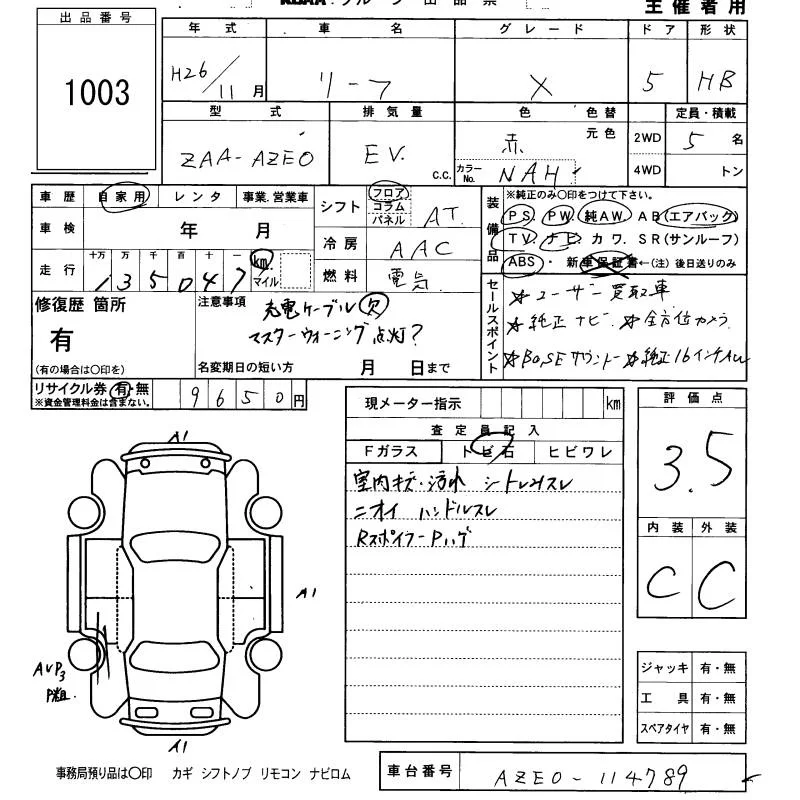 出品番号
1003
主催者用
年式 車名 グレード ドア 形状
H26/11月 リーフ X 5 HB
型式 排気量 色 色替 定員・積載
元色
ZAA-AZEO EV. C.C. 赤 カラーNo. NAH 2WD 4WD 5名 トン
車歴 自家用 レンタ 事業.営業車
車検 年 月
走行 十万 万 千 百 十 一
135047 km マイル
シフト フロア コラム パネル AT
冷房 AAC
燃料 電気
装備品
※純正のみ○印をつけて下さい。
PS. PW 純AW. AB(エアバック)
TV. ナビ カワ. SR(サンルーフ)
ABS ・ 新車保証書←(注)後日送りのみ
セールスポイント
☆ユーザー買取車
☆純正ナビ ☆全方位カメラ
☆BOSEサウンド ☆純正16インチAW
修復歴 箇所
有
(有の場合は○印を)
注意事項 充電ケーブル欠
マスターウォーニング点灯?
名変期日の短い方 月 日まで
リサイクル券 有・無
※資金管理料金は含まない。
9650円
現メーター指示 km
査定員記入
Fガラス トビ石 ヒビワレ
室内キズ・汚れ シートしみスレ
ニオイ ハンドルスレ
RスポイラーPハゲ
評価点
3.5
内装 外装
C C
A1
A1
AUP3
P粗.
A1
ジャッキ 有・無
工具 有・無
スペアタイヤ 有・無
事務局預り品は○印 カギ シフトノブ リモコン ナビロム
車台番号 AZEO-114789